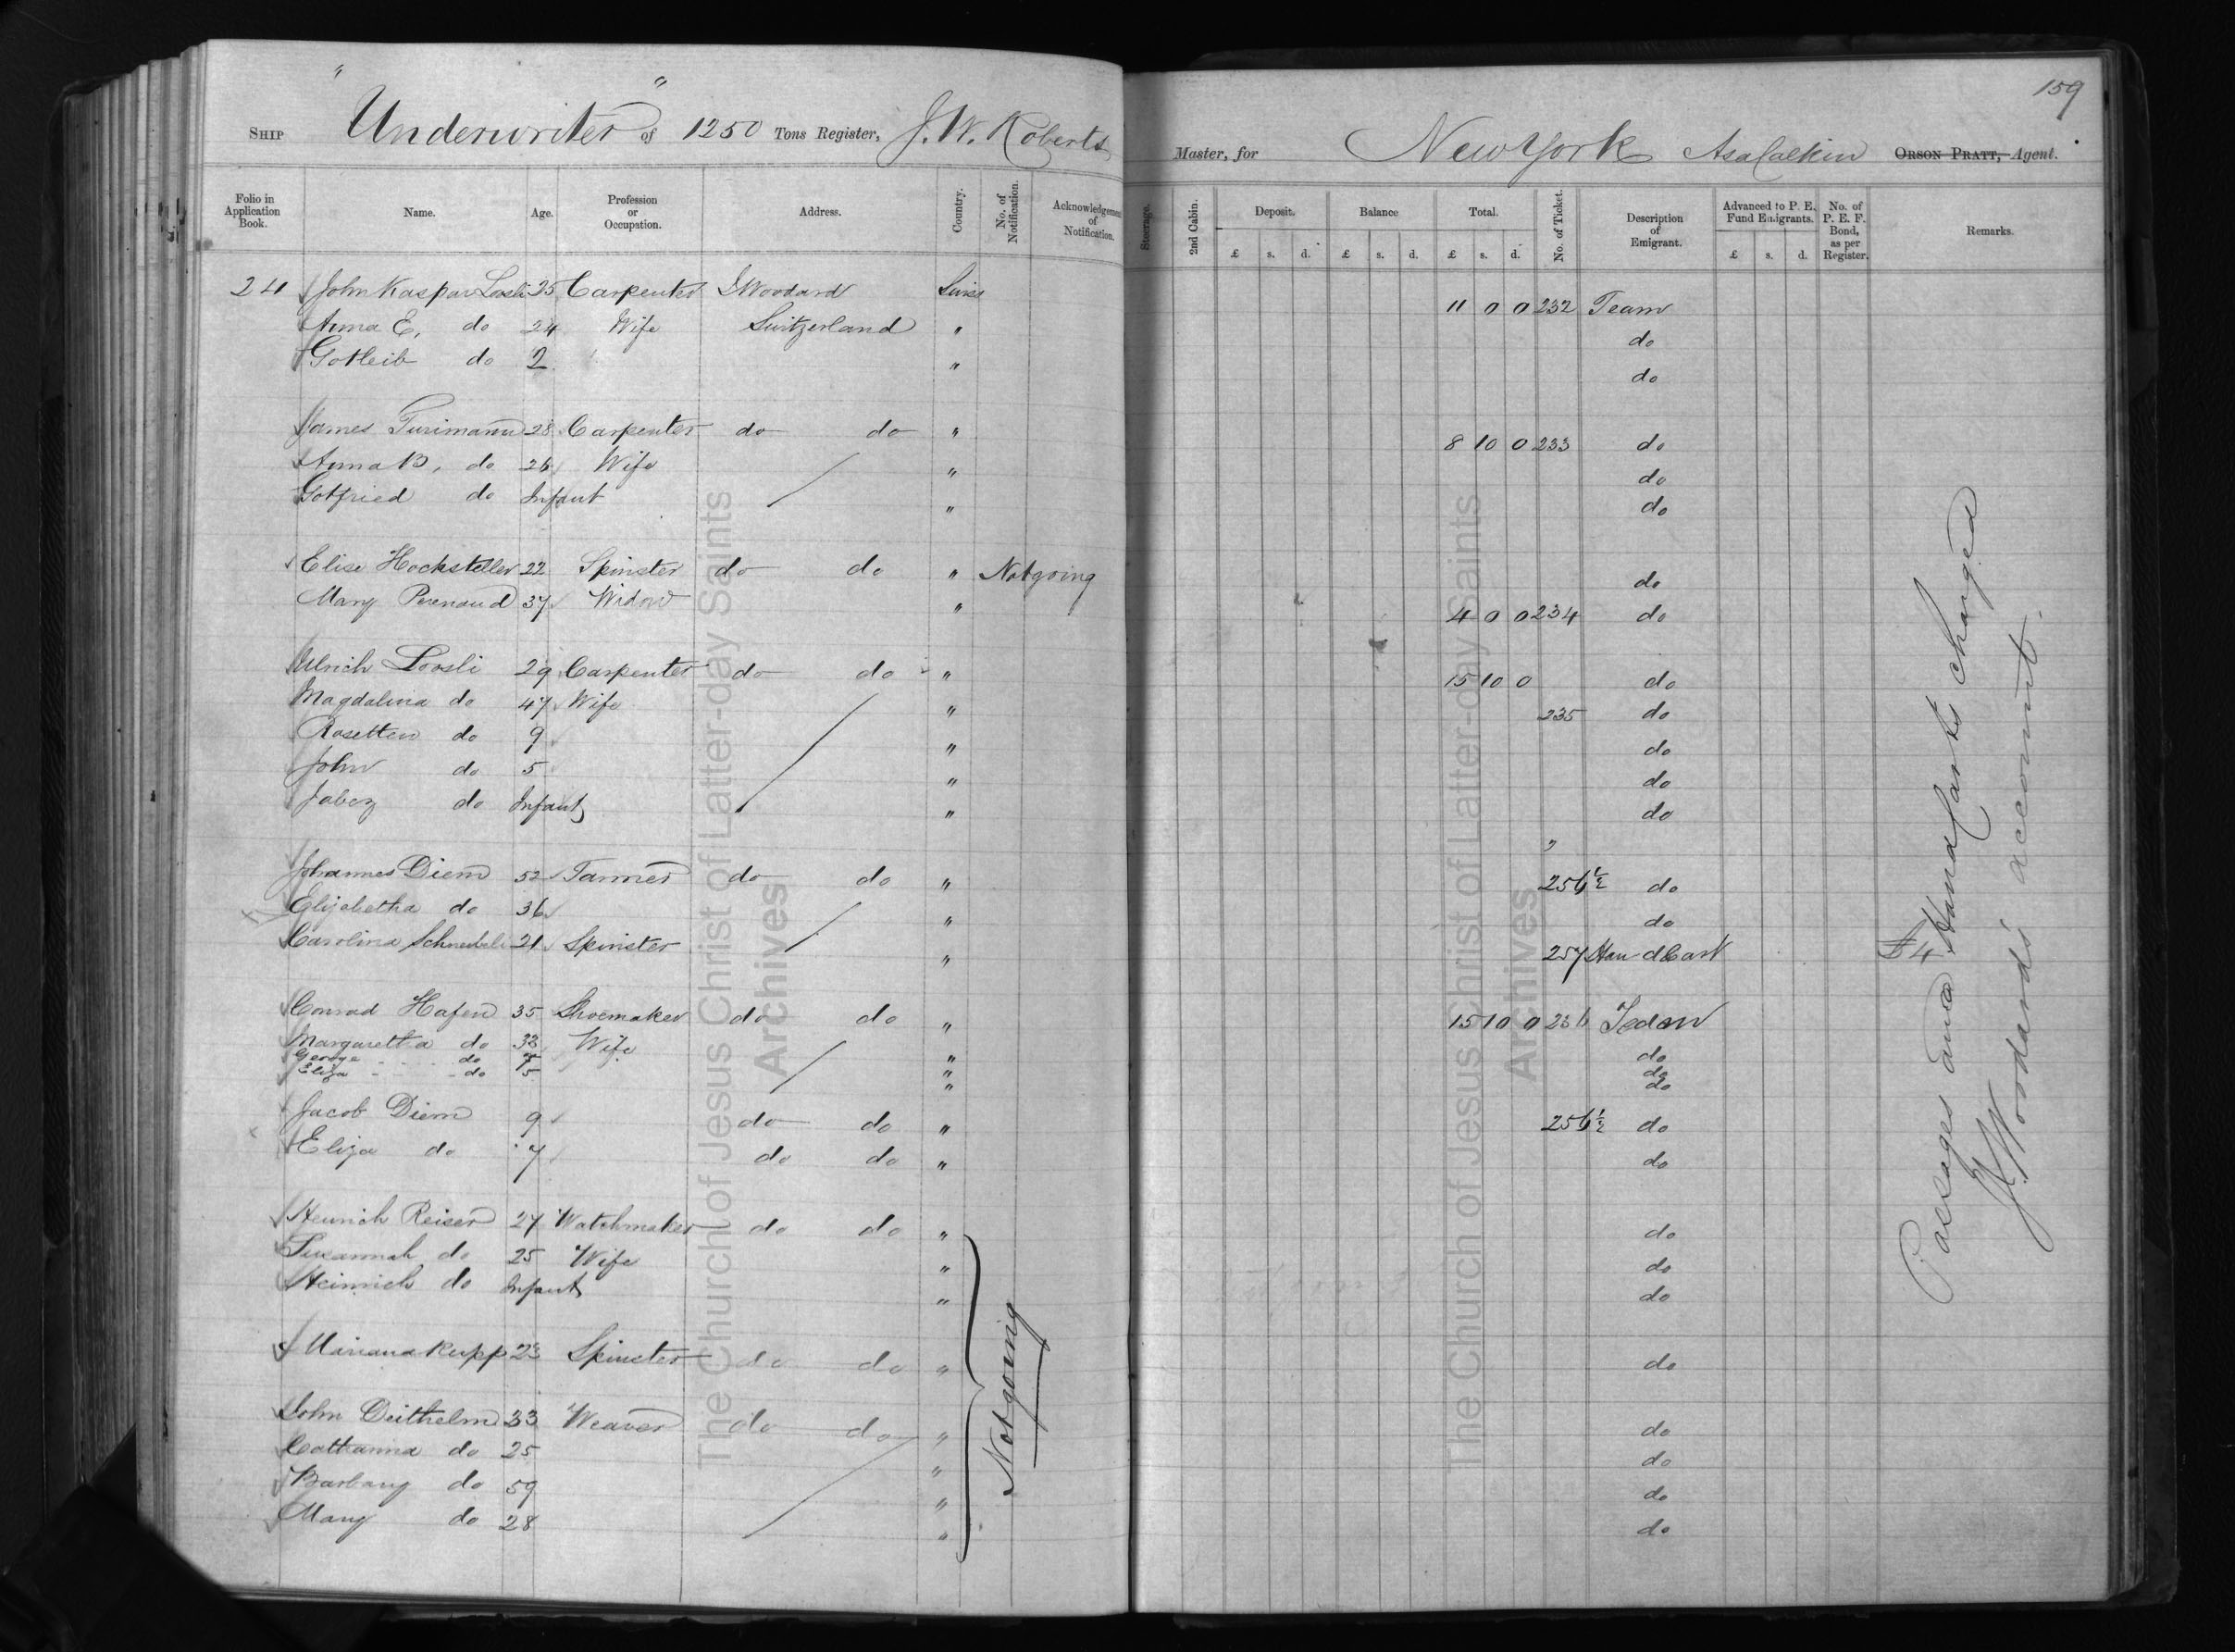 159
SHIP "Underwriter" of 1250 Tons Register, J. W. Roberts Master, for New York Asa Calkin ORSON PRATT, Agent.
Folio in Application Book. Name. Age. Profession or Occupation. Address. Country. No. of Notification. Acknowledgement of Notification. Steerage. 2nd Cabin. Deposit. Balance Total. No. of Ticket. Description of Emigrant. Advanced to P. E. Fund Emigrants. No. of P. E. F. Bond, as per Register. Remarks.
£ s. d. £ s. d. £ s. d. £ s. d.
24 John Kaspar Loosli 25 Carpenter J Woodard Swiss 11 0 0 232 Team
Anna E. do 24 Wife Switzerland " do
Gotleib do 2 " do
James Turimann 28 Carpenter do do " 8 10 0 233 do
Anna B, do 26 Wife " do
Gotfried do Infant " do
Elise Hocksteller 22 Spinster do do " Not going do
Mary Perenoud 37 Widow " 4 0 0 234 do
Ulrich Loosli 29 Carpenter do do " 15 10 0 do
Magdalina do 47 Wife " 235 do
Rosetten do 9 " do
John do 5 " do
Jabez do Infant " do
"
Johannes Diem 52 Tanner do do " 256 1/2 do
Elizabetha do 36 " do
Carolina 21 Spinster " 257 Hand Cart
Conrad Hafen 35 Shoemaker do do " 15 10 0 236 Team
Margaretta do 33 Wife " do
George do 7 " do
Eliza do 5 " do
Jacob Diem 9 do do " 256 1/2 do
Eliza do 7 do do " do
Heinrich Reiser 27 Watchmaker do do " do
Susannah do 25 Wife " do
Heinrich do Infant " do
Mariana Rupp 23 Spinster do do " do
John Deithelm 33 Weaver do do " do
Catharina do 25 " do
Barbary do 59 " do
Mary do 28 " do
Not going
Passages and £4 Hand Carts charged
J. Woodard's account.
The Church of Jesus Christ of Latter-day Saints
Archives
The Church of Jesus Christ of Latter-day Saints
Archives